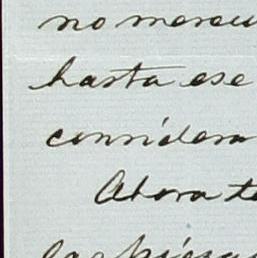 no merec
hasta ese
considera
Ahora te